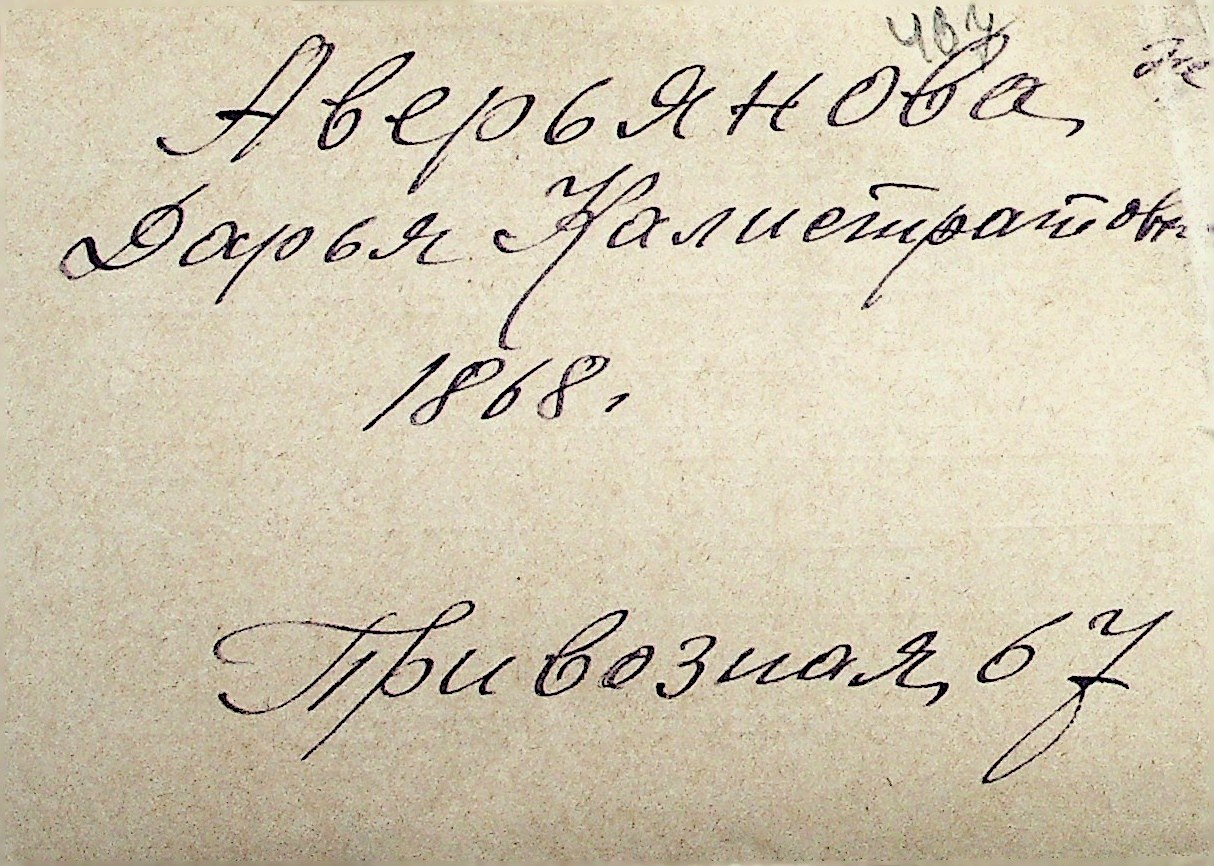 Аверьянова,
Дарья Калистратовн
1868 г.
Привозная, 67